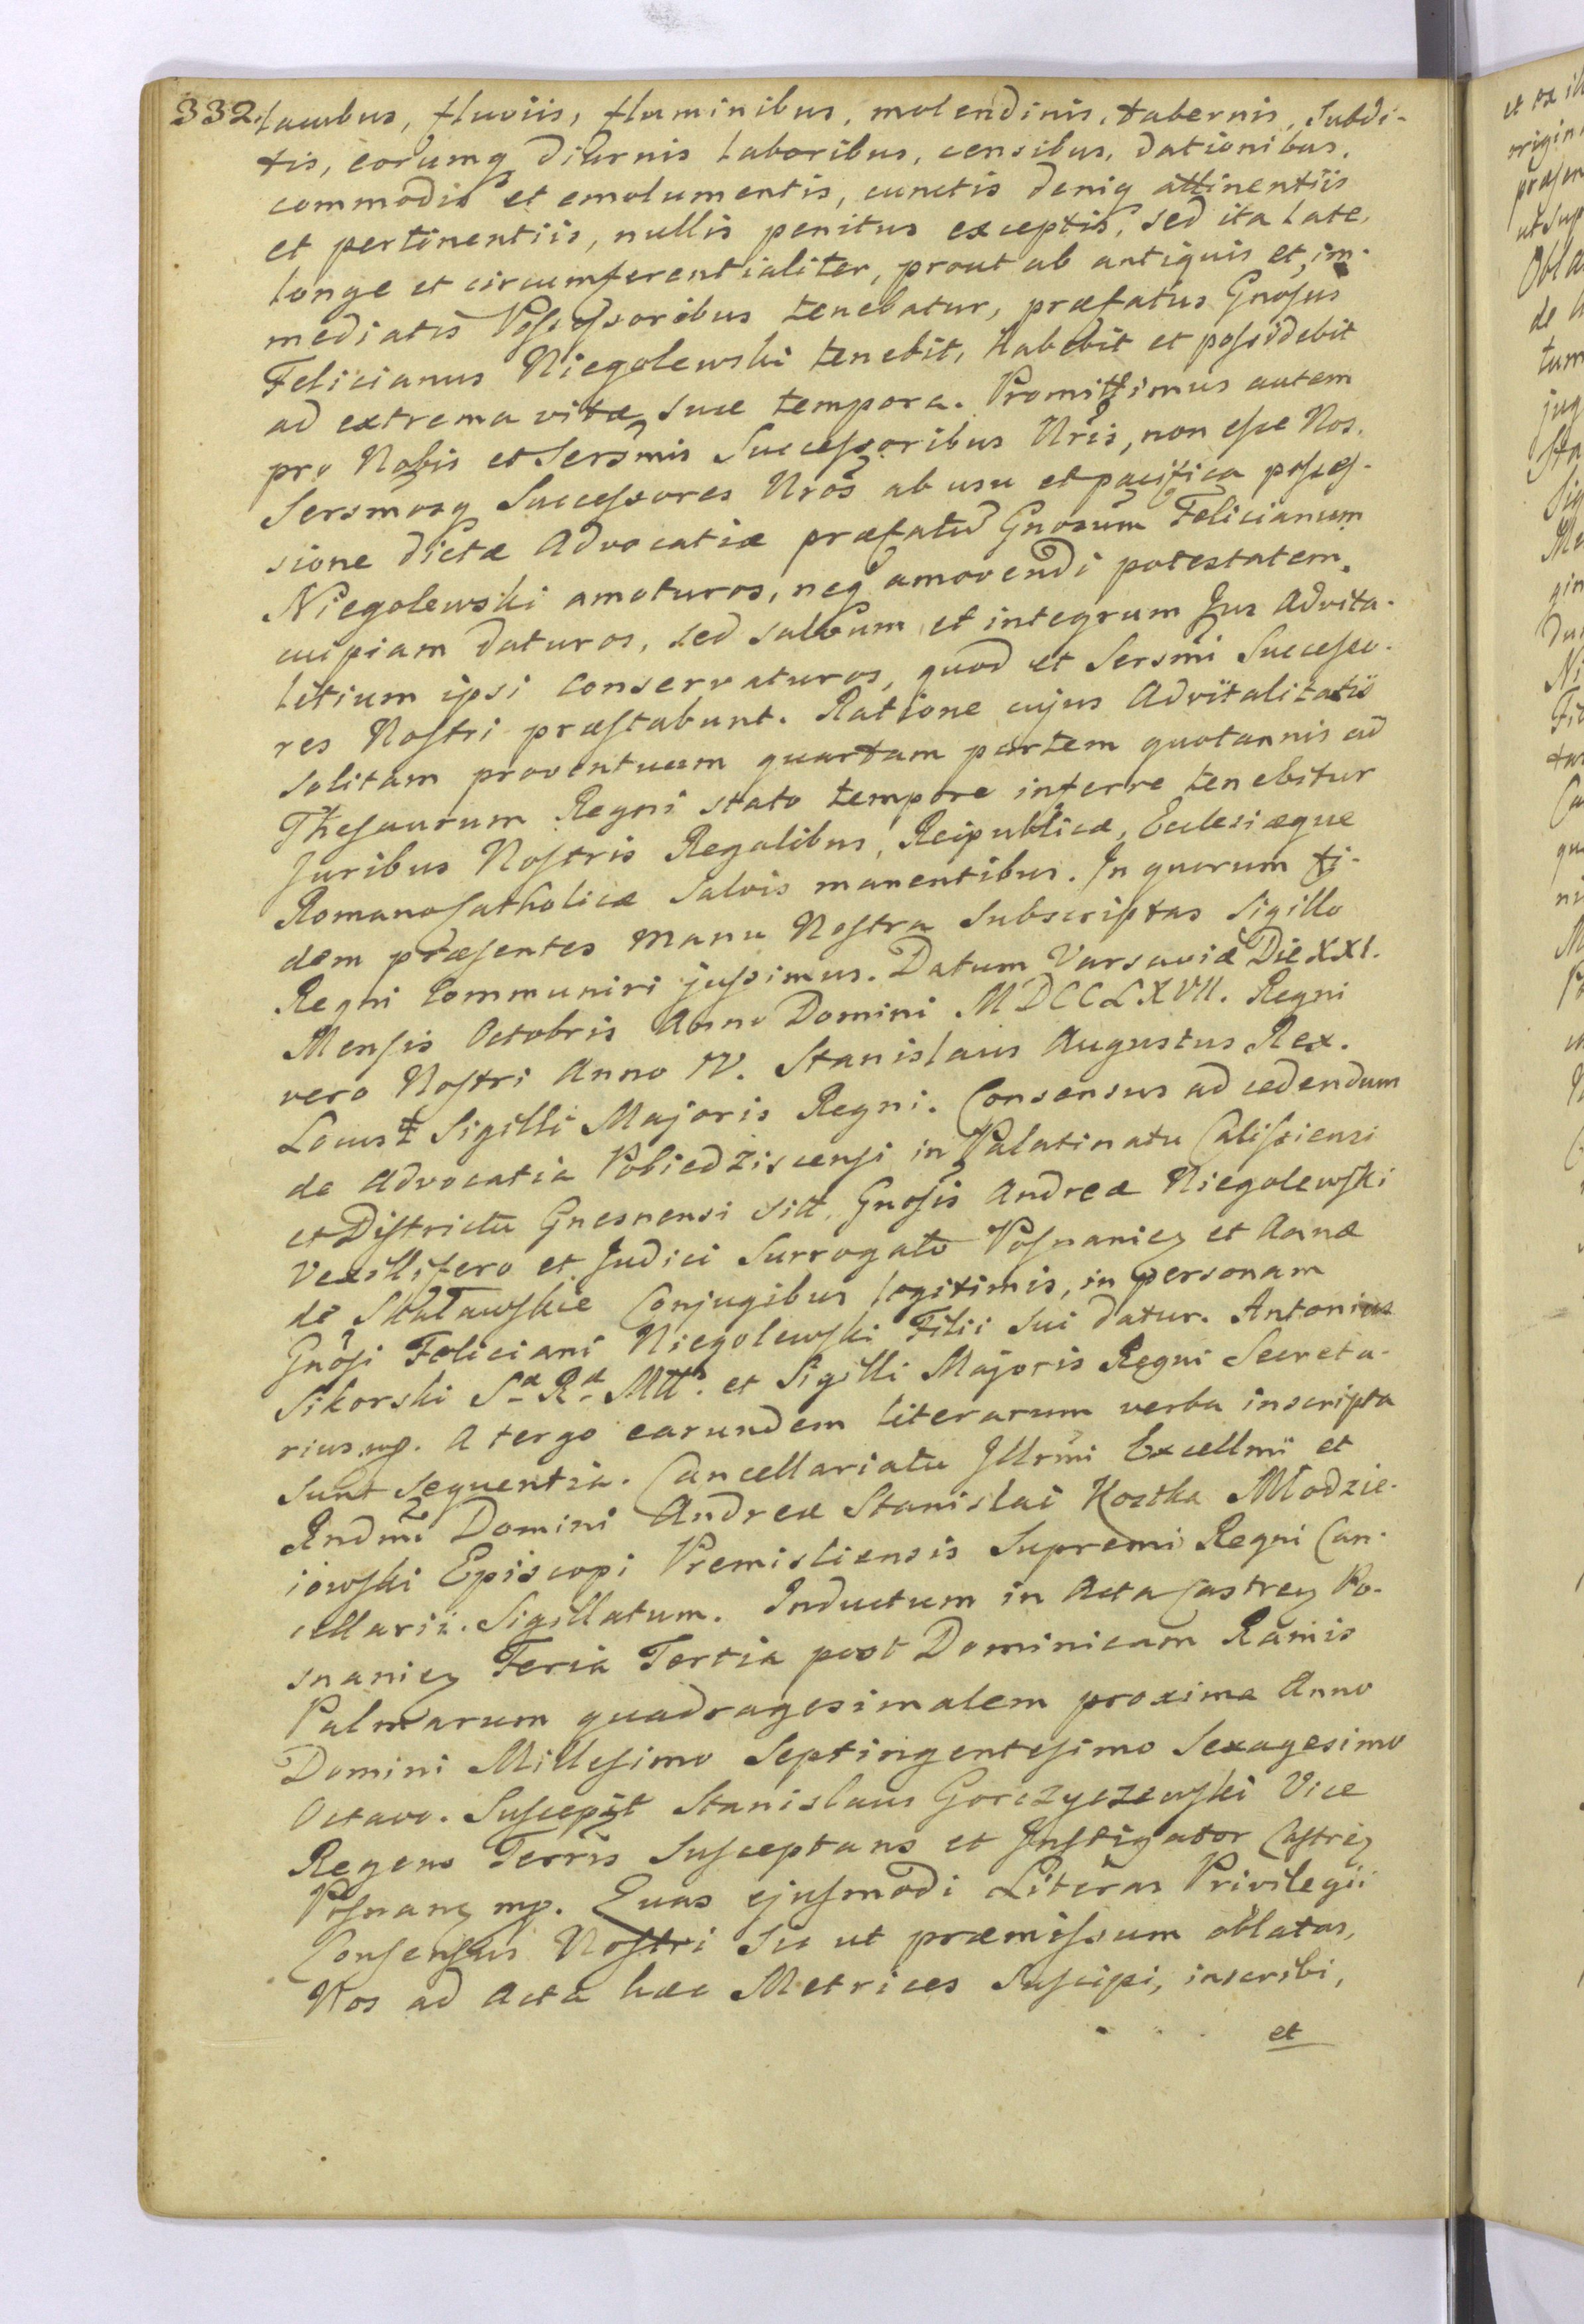 332. lacubus, fluviis, fluminibus, molendinis, tabernis, subdi-
tis, eorumq diurnis laboribus, censibus, dationibus,
commodis et emolumentis, cunctis deniq attinentiis
et pertinentiis, nullis penitus exceptis, sed ita late,
longe et circumferentialiter, prout ab antiquis et im-
mediatis Possessoribus tenebatur, præfatus Gnosus
Felicianus Niegolewski tenebit, habebit et possidebit
ad extrema vitæ suæ tempora. Promittimus autem
pro Nobis et Sersmis Successoribus Nris, non esse Nos,
Sersmosq Successores Nros ab usu et pacifica posses-
sione dictæ Advocatiæ præfatu Gnosum Felicianum
Niegolewski amoturos, neq amovendi potestatem
cuipiam daturos, sed salvum et integrum Jus Advita-
litium ipsi conservaturos, quod et Sersmi Successo-
res Nostri præstabunt. Ratione cujus Advitalitatis
solitam proventuum quartam partem quotannis ad
Thesaurum Regni stato tempore inferre tenebitur
Juribus Nostris Regalibus, Reipublicæ, Ecclesiæque
Romano Catholicæ salvis manentibus. In quorum fi-
dem præsentes manu Nostra subscriptas Sigillo
Regni Communiri jussimus. Datum Varsaviæ Die XXI.
Mensis Octobris Anno Domini MDCCLXVII. Regni
vero Nostri Anno IV. Stanislaus Augustus Rex.
Locus Sigilli Majoris Regni. Consensus ad cedendum
de Advocatia Pobiedziscensi in Palatinatu Calissiensi
et Districtu Gnesnensi sita, Gnosis Andreæ Niegolewski
Vexillifero et Judici Surrogato Posnanien et Annæ
de Skaławskie Conjugibus legitimis, in personam
Gnosi Feliciani Niegolewski Filii sui datur. Antonius
Sikorski Sæ Ræ Mtt. et Sigilli Majoris Regni Secreta-
rius mp. A tergo earundem literarum verba inscripta
sunt sequentia. Cancellariatu Illrmi Excellmi et
Rndmi Domini Andreæ Stanislai Kostka Młodzie-
iowski Episcopi Premisliensis Supremi Regni Can-
cellarii. Sigillatum. Inductum in Acta Castren Po-
snanien Feria Tertia post Dominicam Ramis
Palmarum quadragesimalem proxima Anno
Domini Millesimo Septingentesimo Sexagesimo
Octavo. Suscepit Stanislaus Gorczyczewski Vice
Regens Terris Susceptans et Instigator Castren
Posnann mp. Quas ejusmodi Literas Privilegii
Consensus Nostri sic ut præmissum oblatas,
Nos ad Acta hæc Metrices suscipi, inscribi,
et